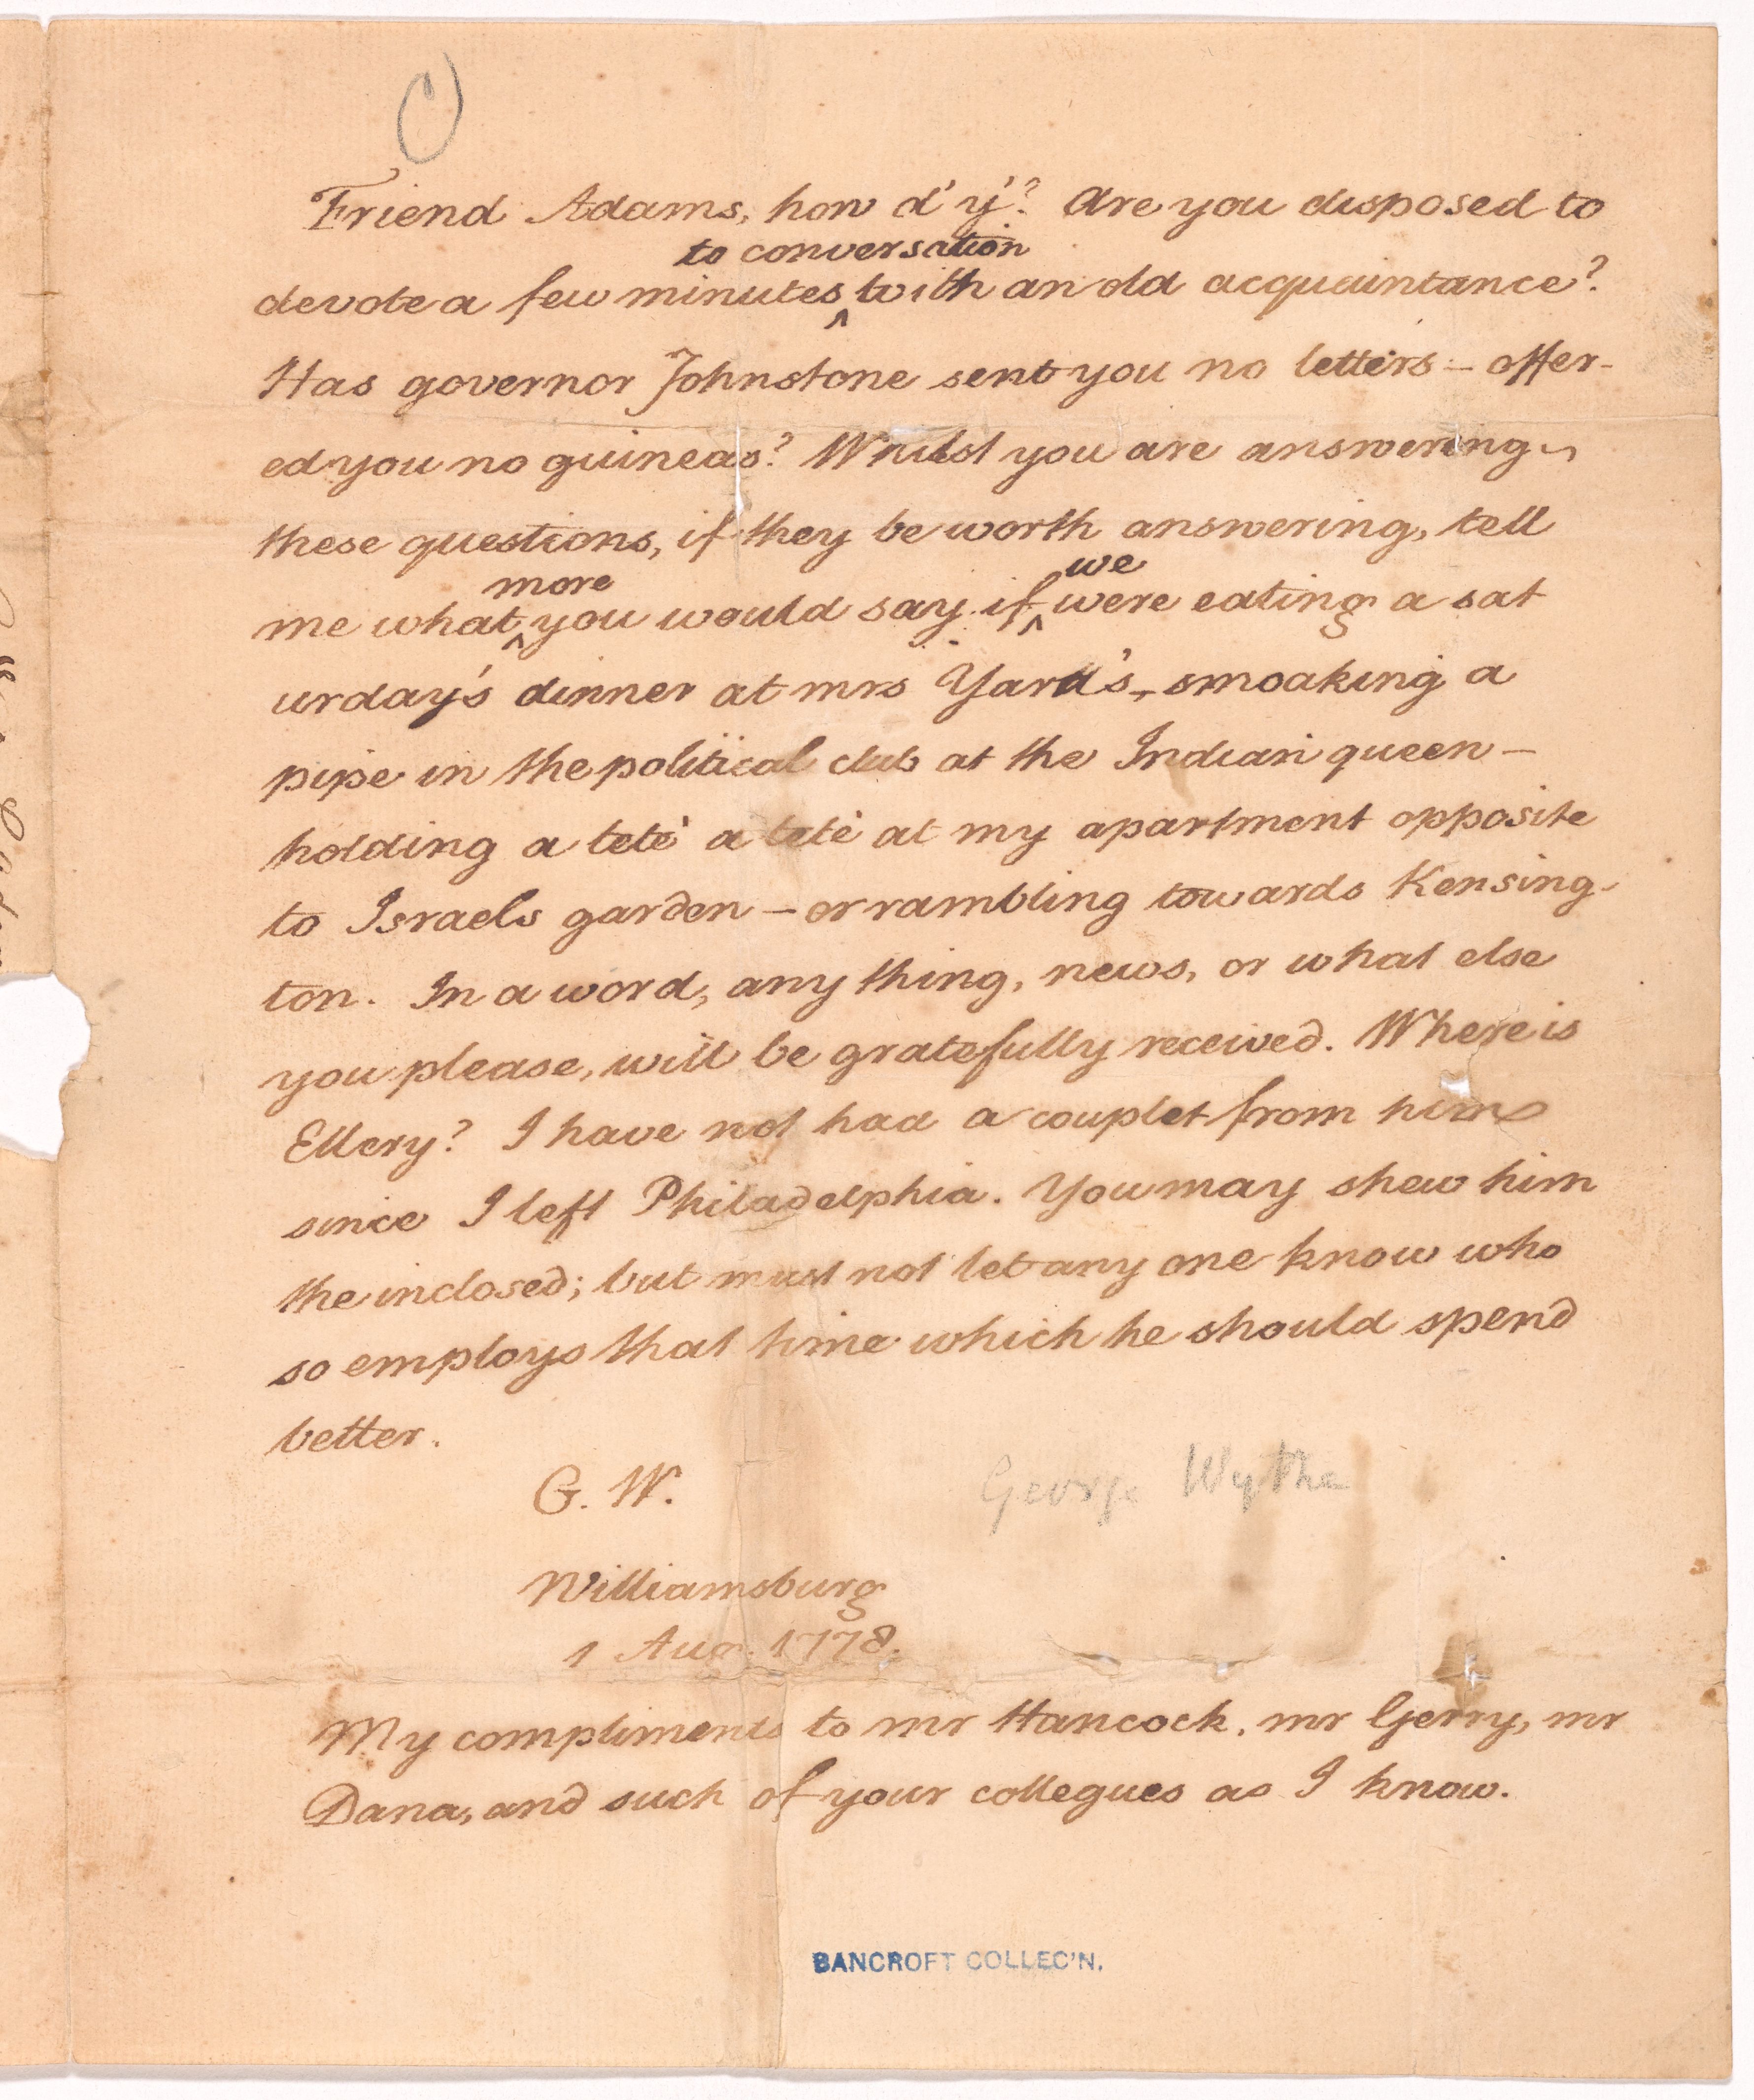 Friend Adams, how d'y'? Are you disposed to
to conversation
devote a few minutes ^ with an old acquaintance?
Has governor Johnstone sent you no letters – offer-
ed you no guineas? Whilst you are answering
these questions, if they be worth answering, tell
more we
me what ^ you would say if ^ were eating a sat
urday's dinner at mrs Yard's, smoaking a
pipe in the political club at the Indian queen –
holding a tetè a tetè at my apartment opposite
to Israels garden – or rambling towards Kensing-
ton. In a word, any thing, news, or what else
you please, will be gratefully received. Where is
Ellery? I have not had a couplet from him
since I left Philadelphia. You may shew him
the inclosed; but must not let any one know who
so employs that time which he should spend
better.
G. W.
George Wythe
Williamsburg
1 Aug. 1778.
My compliments to mr Hancock, mr Gerry, mr
Dana, and such of your collegues as I know.
BANCROFT COLLEC'N.